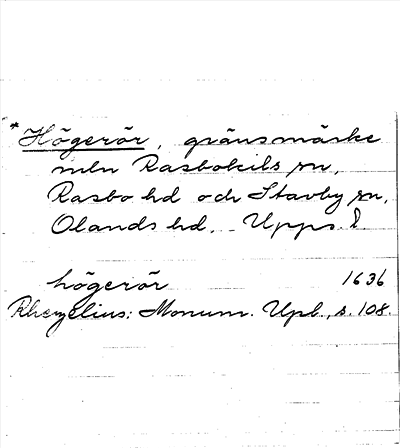 *Högerör, gränsmärke
mln Rasbokils sn,
Rasbo hd och Stavby sn,
Olands hd. Upps. l.
högerör 1636
Rhezelius: Monum. Upl., s. 108.